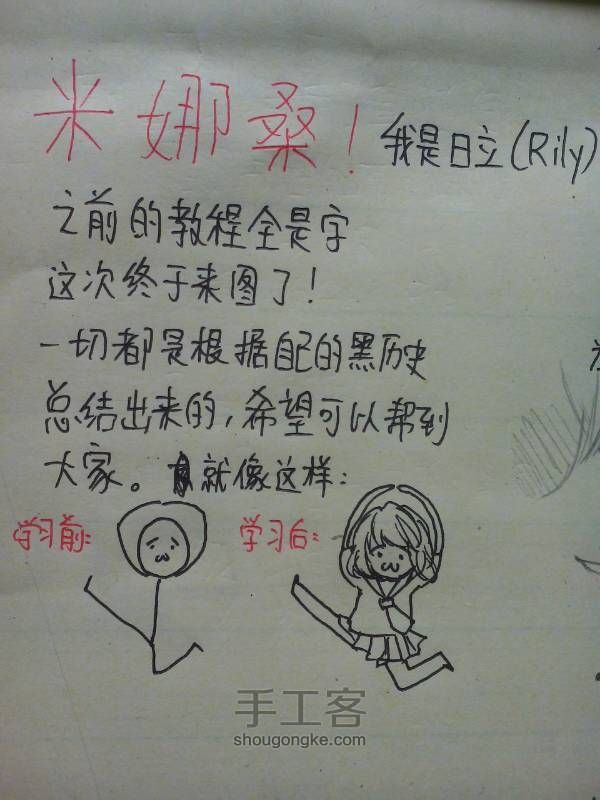 米娜桑！我是日立(Rily)
之前的教程全是字
这次终于来图了！
一切都是根据自己的黑历史
总结出来的，希望可以帮到
大家。就像这样：
学习前：
学习后：
手工客
shougongke.com